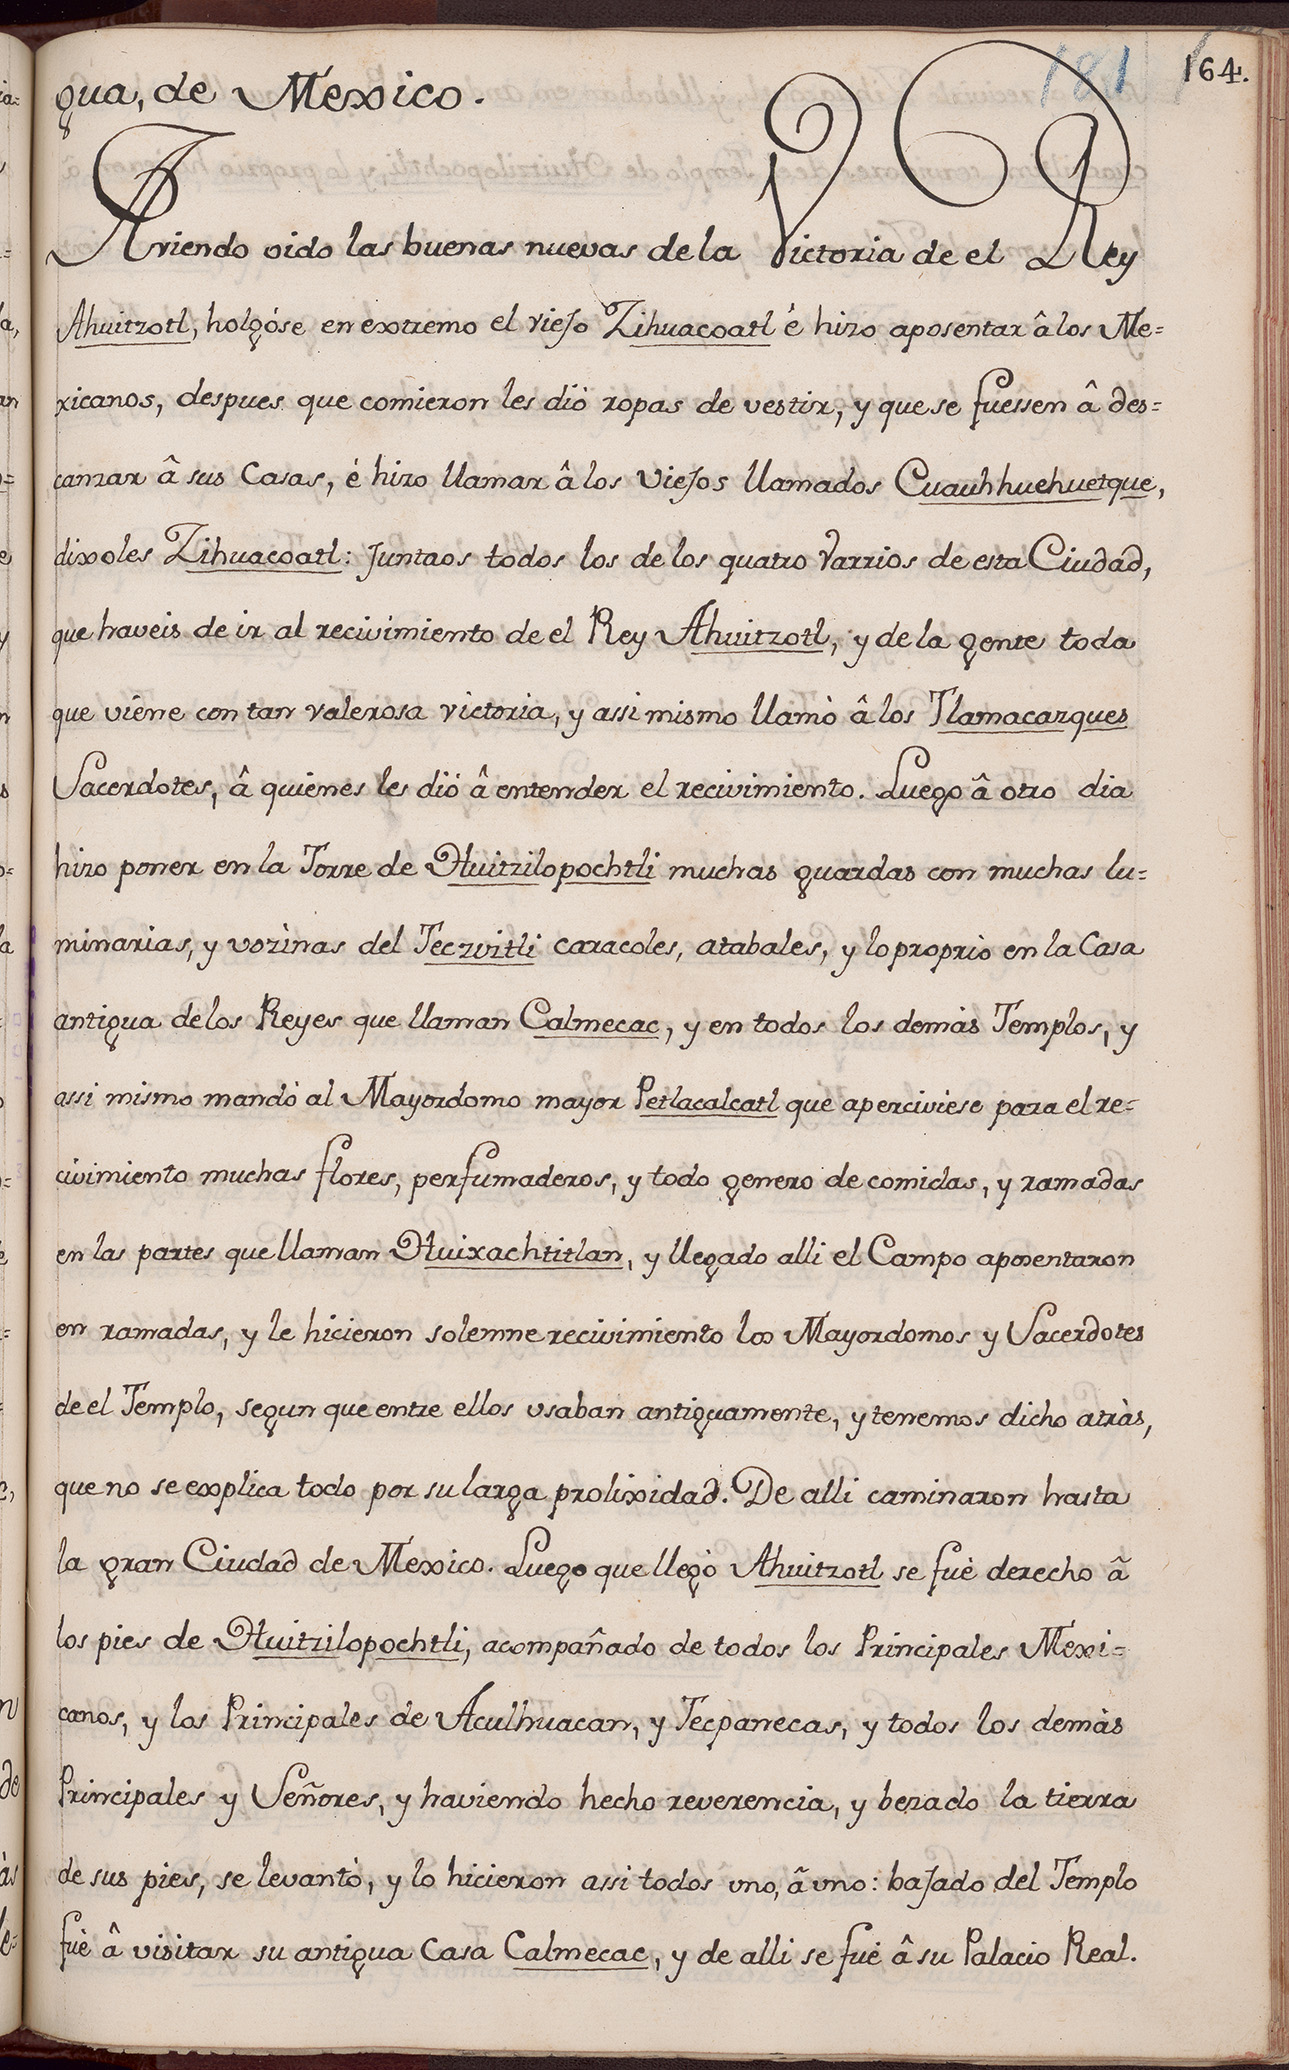 181 164.
gua, de Mexico.
Aviendo oido las buenas nuevas de la Victoria de el Rey
Ahuitzotl, holgóse en extremo el viejo Zihuacoatl é hizo aposentar â los Me=
xicanos, despues que comieron les dió ropas de vestir, y que se fuessen â des=
canzar â sus Casas, é hizo llamar â los Viejos llamados Cuauhhuehuetque,
dixoles Zihuacoatl: Juntaos todos los de los quatro Varrios de esta Ciudad,
que haveis de ir al recivimiento de el Rey Ahuitzotl, y de la gente toda
que viene con tan valerosa victoria, y assi mismo llamò â los Tlamacazques
Sacerdotes, â quienes les dió â entender el recivimiento. Luego â otro dia
hizo poner en la Torre de Huitzilopochtli muchas guardas con muchas lu=
minarias, y vozinas del Teczvitli caracoles, atabales, y lo proprio en la Casa
antigua de los Reyes que llaman Calmecac, y en todos los demàs Templos, y
assi mismo mandó al Mayordomo mayor Petlacalcatl que aperciviese para el re=
civimiento muchas flores, perfumaderos, y todo genero de comidas, y ramadas
en las partes que llaman Huixachtitlan, y llegado alli el Campo aposentaron
en ramadas, y le hicieron solemne recivimiento los Mayordomos y Sacerdotes
de el Templo, segun que entre ellos usaban antiguamente, y tenemos dicho atràs,
que no se explica todo por su larga prolixidad. De alli caminaron hasta
la gran Ciudad de Mexico. Luego que llegò Ahuitzotl se fuè derecho â
los pies de Huitzilopochtli, acompañado de todos los Principales Mexi=
canos, y los Principales de Aculhuacan, y Tecpanecas, y todos los demàs
Principales y Señores, y haviendo hecho reverencia, y bezado la tierra
de sus pies, se levantò, y lo hicieron assi todos uno, â uno: bajado del Templo
fuè â visitar su antigua Casa Calmecac, y de alli se fuè â su Palacio Real.